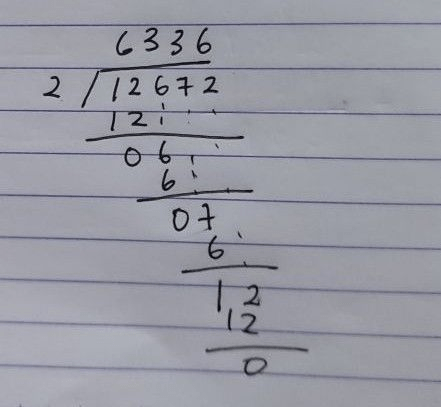 6336
2 / 12672
12
06
6
07
6
12
12
0